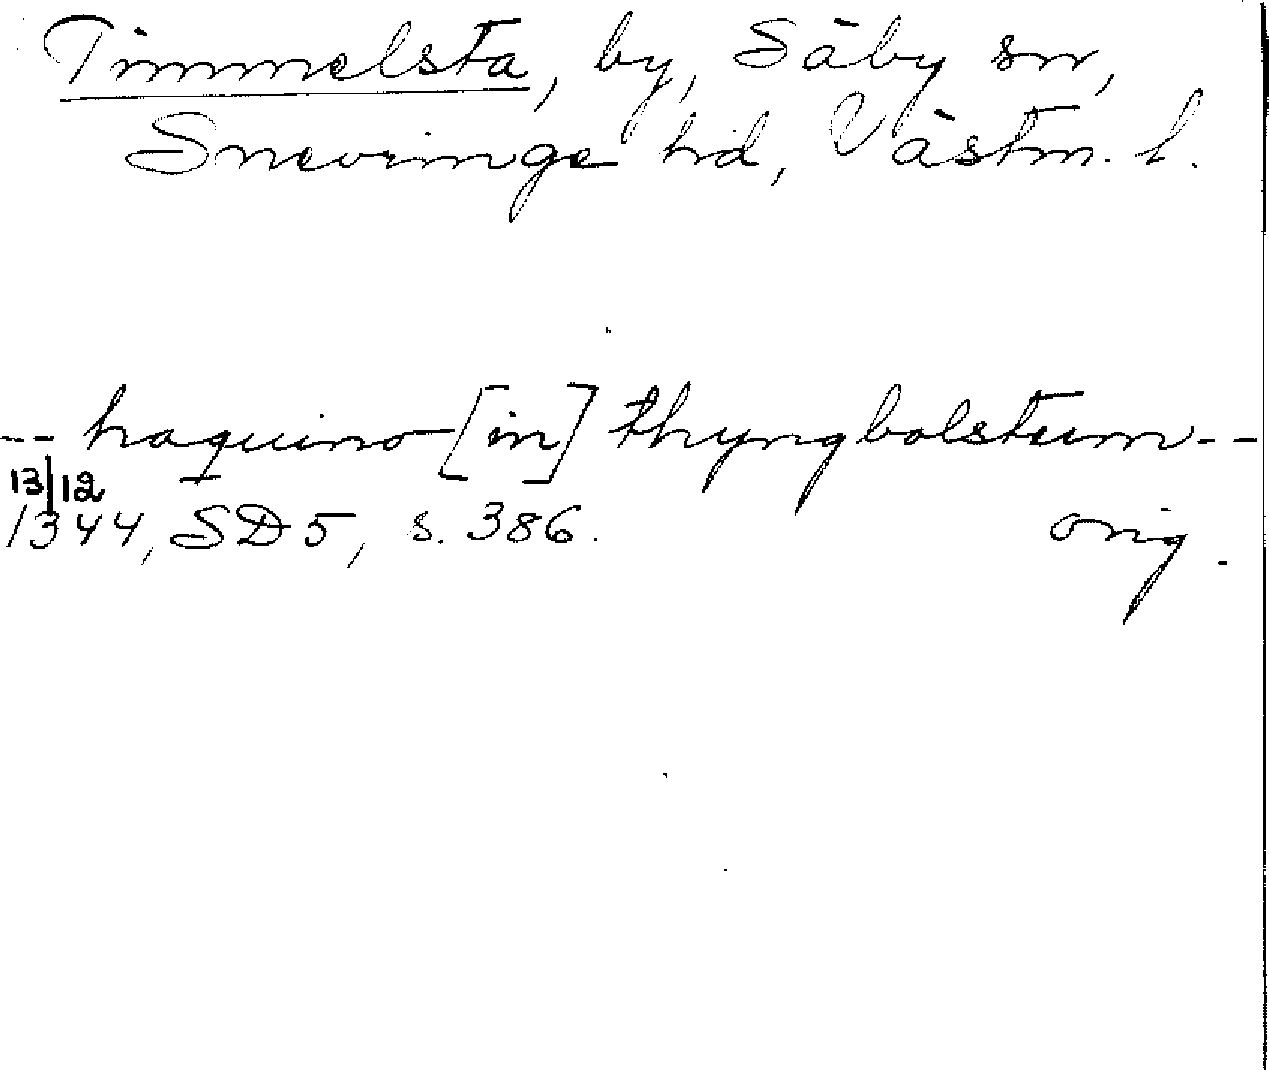 Timmelsta, by, Säby sn,
Snevringe hd, Västm. l.
-- haquino [in] thyngbolstum --
13/12
1344, SD 5, s. 386. orig.